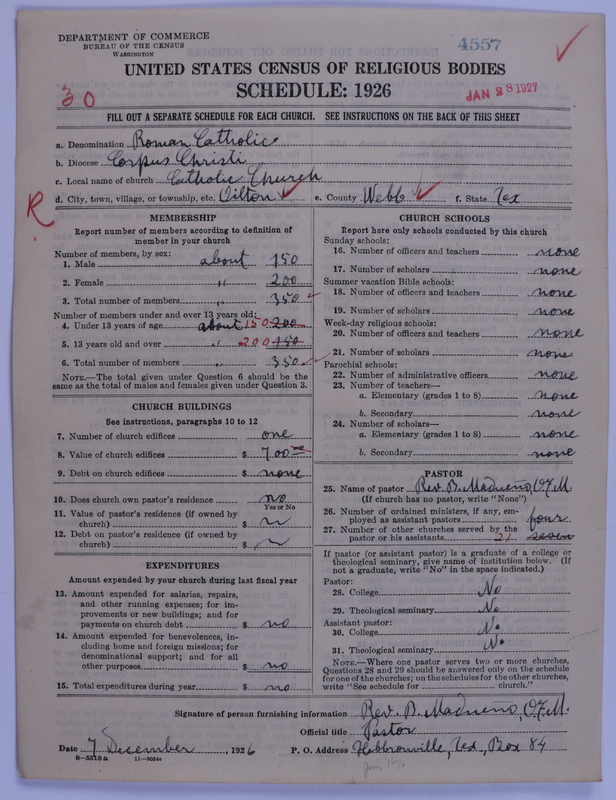 DEPARTMENT OF COMMERCE
BUREAU OF THE CENSUS
WASHINGTON
4557
UNITED STATES CENSUS OF RELIGIOUS BODIES
SCHEDULE: 1926
JAN 28 1927
30
FILL OUT A SEPARATE SCHEDULE FOR EACH CHURCH. SEE INSTRUCTIONS ON THE BACK OF THIS SHEET
a. Denomination Roman Catholic
b. Diocese Corpus Christi
c. Local name of church Catholic Church
d. City, town, village, or township, etc. Oilton e. County Webb f. State Tex
R
MEMBERSHIP
Report number of members according to definition of
member in your church
Number of members, by sex:
1. Male about 150
2. Female " 200
3. Total number of members " 350
Number of members under and over 13 years old:
4. Under 13 years of age about 150 200
5. 13 years old and over " 200 150
6. Total number of members " 350
NOTE.—The total given under Question 6 should be the
same as the total of males and females given under Question 3.
CHURCH BUILDINGS
See instructions, paragraphs 10 to 12
7. Number of church edifices one
8. Value of church edifices $ 700
9. Debt on church edifices $ none
10. Does church own pastor's residence no
Yes or No
11. Value of pastor's residence (if owned by
church) $
12. Debt on pastor's residence (if owned by
church) $
EXPENDITURES
Amount expended by your church during last fiscal year
13. Amount expended for salaries, repairs,
and other running expenses; for im-
provements or new buildings; and for
payments on church debt $ no
14. Amount expended for benevolences, in-
cluding home and foreign missions; for
denominational support; and for all
other purposes $ no
15. Total expenditures during year $ no
CHURCH SCHOOLS
Report here only schools conducted by this church
Sunday schools:
16. Number of officers and teachers none
17. Number of scholars none
Summer vacation Bible schools:
18. Number of officers and teachers none
19. Number of scholars none
Week-day religious schools:
20. Number of officers and teachers none
21. Number of scholars none
Parochial schools:
22. Number of administrative officers none
23. Number of teachers—
a. Elementary (grades 1 to 8) none
b. Secondary none
24. Number of scholars—
a. Elementary (grades 1 to 8) none
b. Secondary none
PASTOR
25. Name of pastor Rev. B. Madueno, O.F.M.
(If church has no pastor, write "None")
26. Number of ordained ministers, if any, em-
ployed as assistant pastors four
27. Number of other churches served by the
pastor or his assistants 21 seven
If pastor (or assistant pastor) is a graduate of a college or
theological seminary, give name of institution below. (If
not a graduate, write "No" in the space indicated.)
Pastor:
28. College No
29. Theological seminary No
Assistant pastor:
30. College No
31. Theological seminary No
NOTE.—Where one pastor serves two or more churches,
Questions 28 and 29 should be answered only on the schedule
for one of the churches; on the schedules for the other churches,
write "See schedule for church."
Signature of person furnishing information Rev. B. Madueno, O.F.M.
Official title Pastor
Date 7 December, 1926 P. O. Address Hebbronville, Tex., Box 84
8—5518a 11—9054c